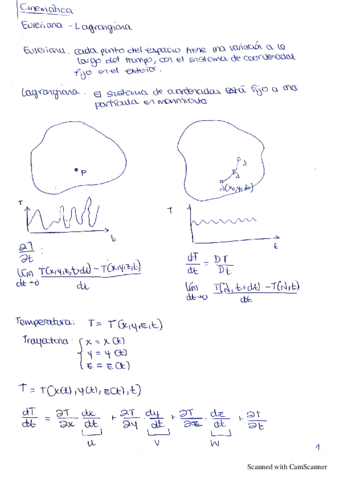 Cinemática
Euleriana - Lagrangiana
Euleriana: cada punto del espacio tiene una variación a lo
largo del tiempo, con el sistema de coordenadas
fijo en el exterior.
Lagrangiana: el sistema de coordenadas está fijo a una
partícula en movimiento
P
T
t
∂T/∂t =
lim dt→0 T(x,y,z,t+dt) - T(x,y,z,t) / dt
T
t
dT/dt = DT/Dt
lim dt→0
Temperatura: T = T(x,y,z,t)
Trayectoria: { x = x(t)
y = y(t)
z = z(t)
T = T(x(t), y(t), z(t), t)
dT/dt = ∂T/∂x · dx/dt + ∂T/∂y · dy/dt + ∂T/∂z · dz/dt + ∂T/∂t
u v w
1
Scanned with CamScanner